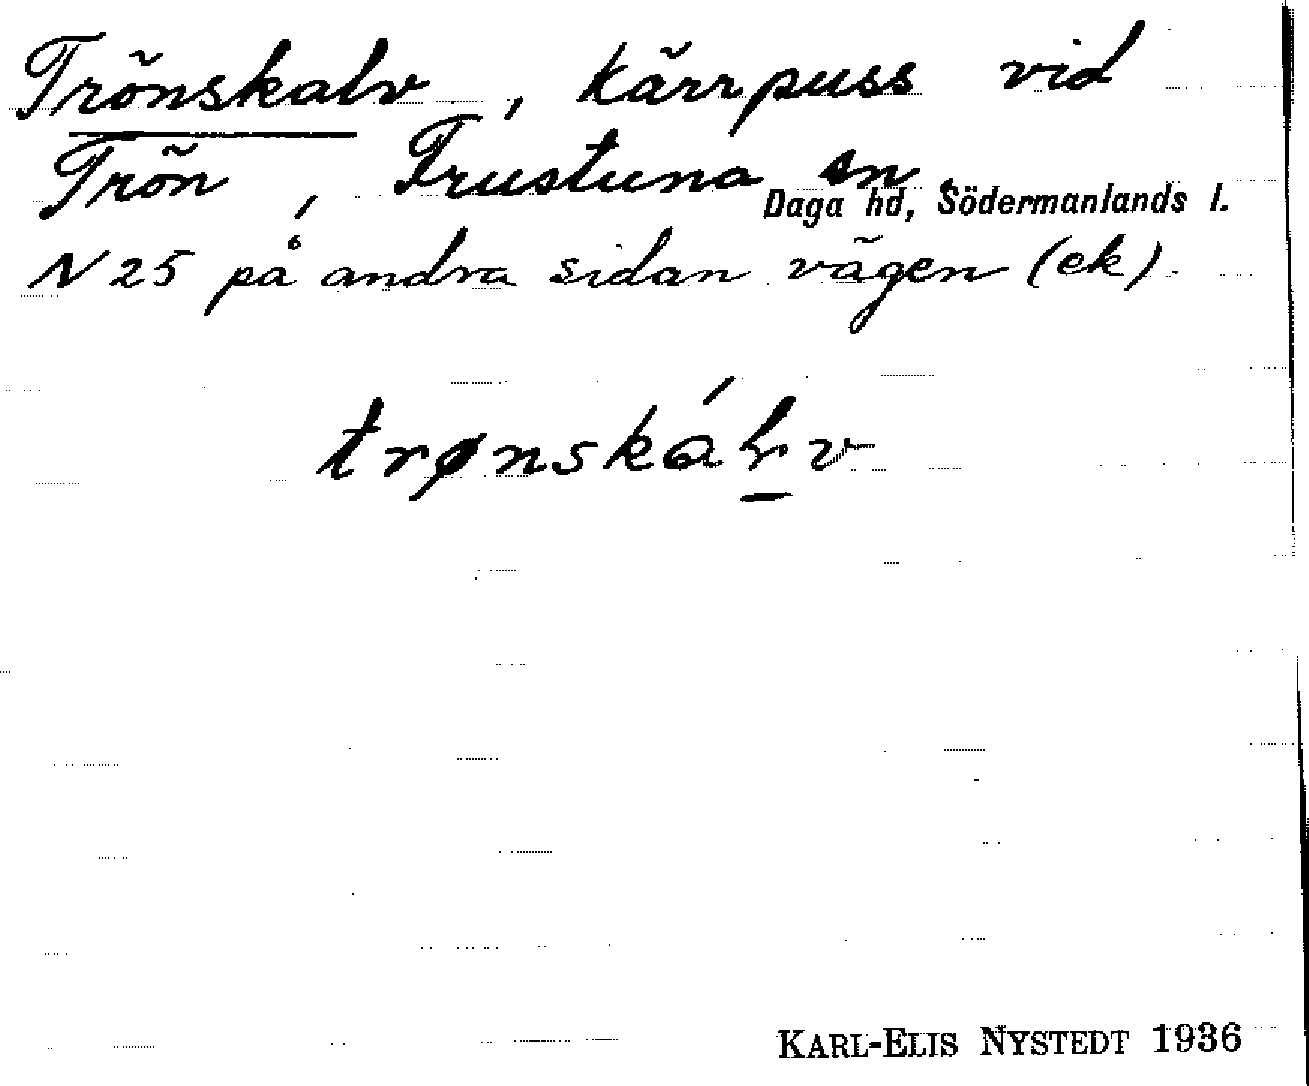 Trönskalv, kärrpuss vid
Trön, Frustuna sn
Daga hd, Södermanlands l.
N 25 på andra sidan vägen (ek).
trønskálv
KARL-ELIS NYSTEDT 1936